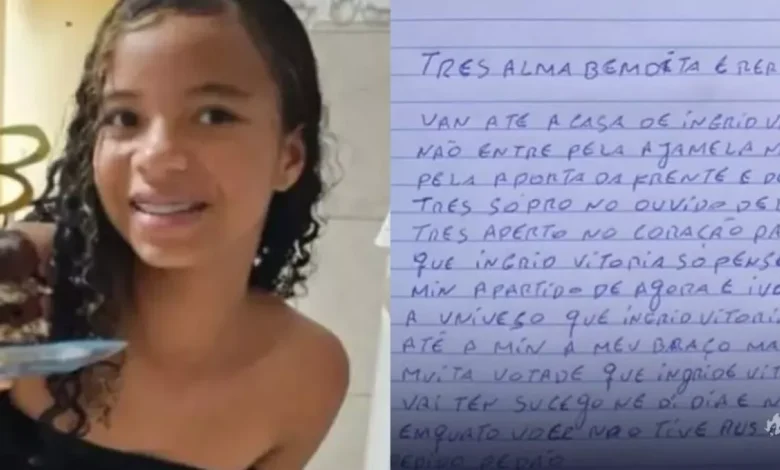 3
TRES ALMA BEMDITA E
VAN ATÉ A CASA DE INGRID V
NÃO ENTRE PELA AJAMELA N
PELA APORTA DA FRENTE E D
TRES SOPRO NO OUVIDO DE
TRES APERTO NO CORAÇÃO DA
QUE INGRID VITORIA SÓ PENSE
MIN APARTIDO DE AGORA E IVO
A UNIVEÇO QUE INGRID VITORI
ATÉ A MIN A MEU BRAÇO MA
MUITA VOTADE QUE INGRIDE VIT
VAI TER SUCEGO NE DI DIA E N
EMQUATO VOCE NÃO TIVE AUS